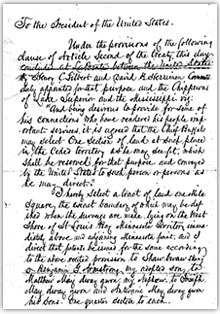 To the President of the United States.
Under the provisions of the following
clause of Article Second of the treaty, this day
concluded at La Pointe between the United States
by Henry C. Gilbert and David B. Herriman Commis
duly appointed for that purpose and the Chippewas
of Lake Superior and the Mississippi viz:
"And being desirous to provide for some of
his connections who have rendered his people impor
tant services, it is agreed that the Chief Buffalo
may select One Section of land at such place
in the Ceded Territory as he may see fit, which
shall be reserved for that purpose and conveyed
by the United States to such person or persons as
he may direct."
I hereby select a tract of land one mile
Square, the exact boundary of which may be de
fined when the surveys are made, lying on the West
Shore of St Louis Bay Minnesota Territory imme
diately above and adjoining Minnesota Point, and I
direct that patents be issued for the same according
to the above recited provision to Shaw
or Benjamin G. Armstrong, my adopted son, to
Matthew May dway gwon my Nephew, to Joseph
May dway gwon and Antoine May dway gwon
his Sons. One quarter section to each.